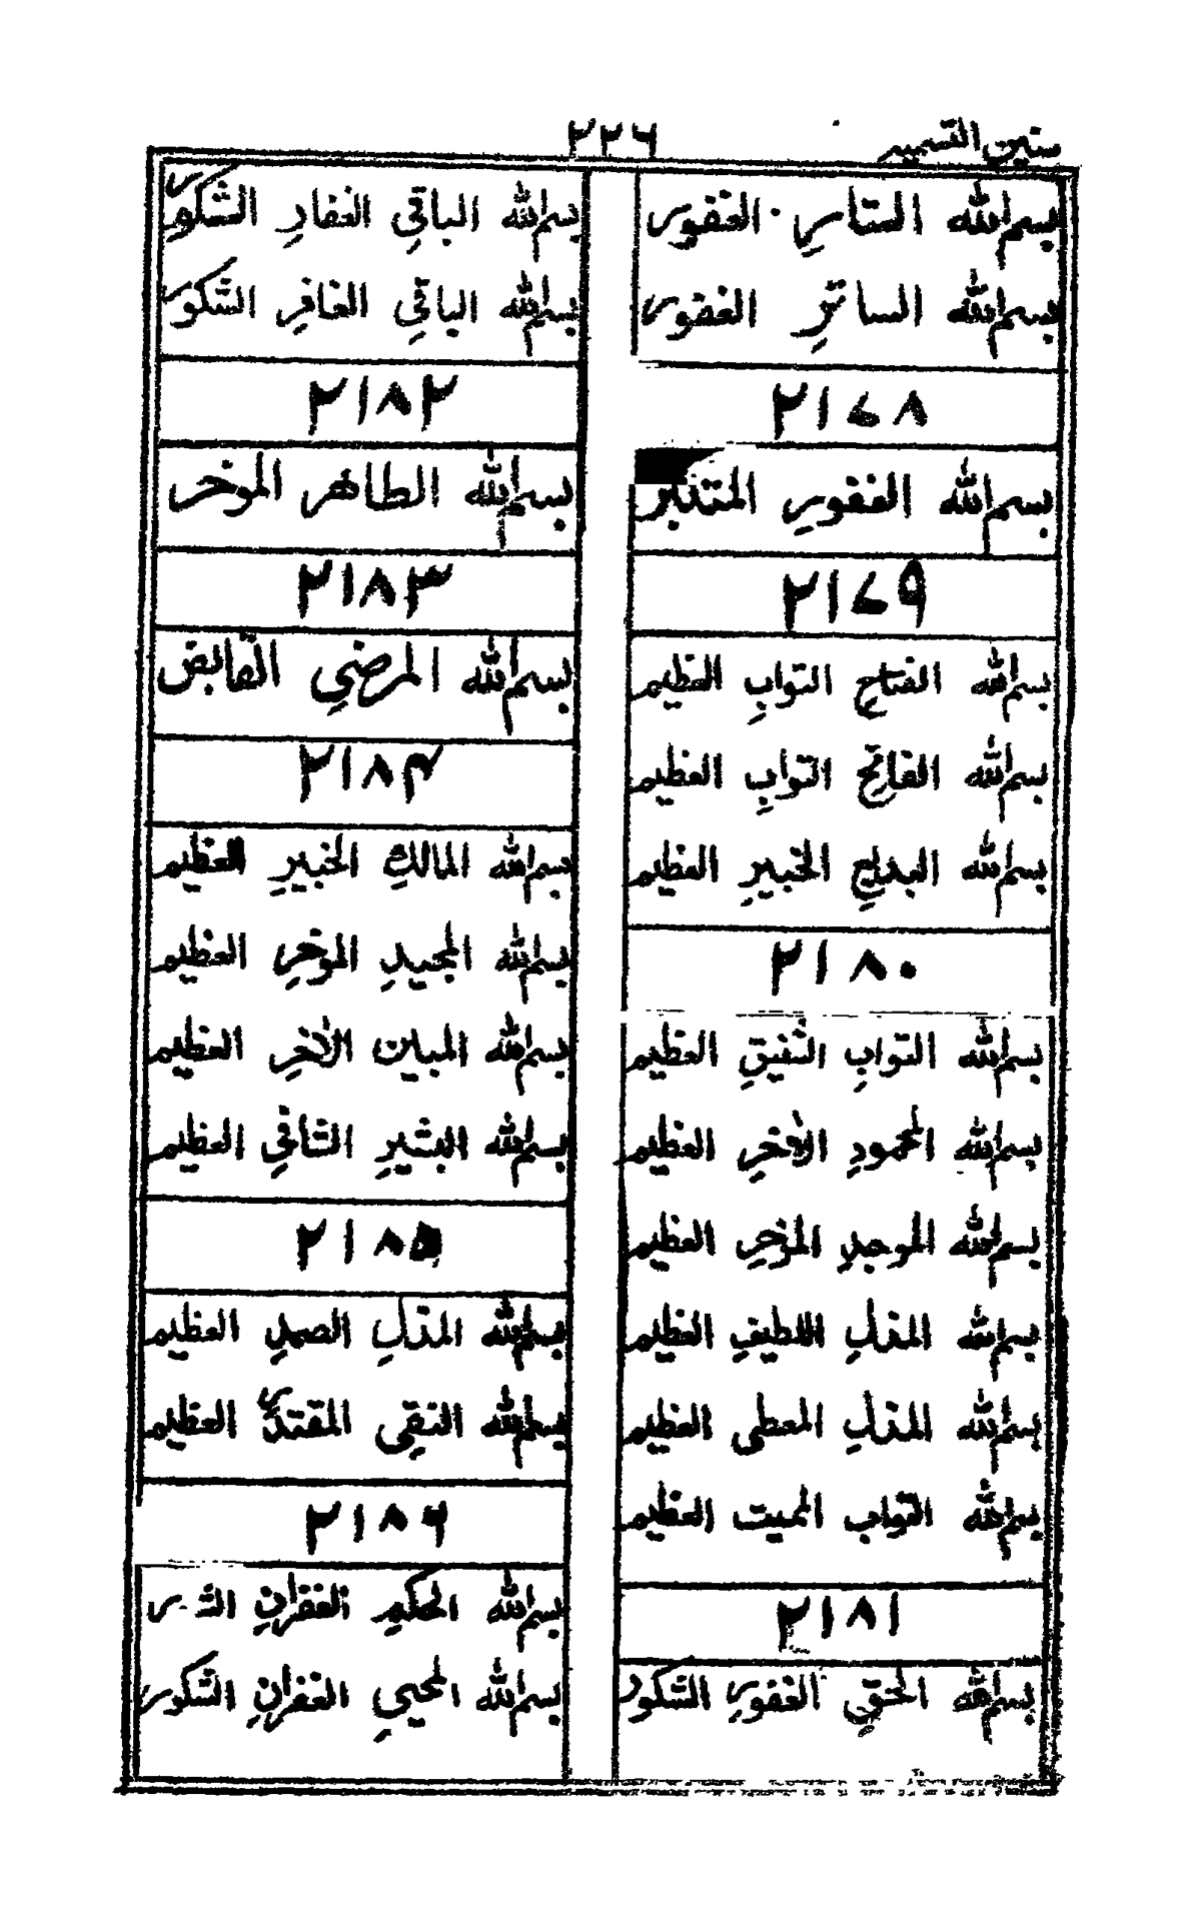 سنین التسمیہ
٢٢٦
بسم الله الستار الغفور
بسم الله الساتر الغفور
٢١٧٨
بسم الله الغفور المتدبر
٢١٧٩
بسم الله الفتاح التواب العظیم
بسم الله الفاتح التواب العظیم
بسم الله البدیع الخبیر العظیم
٢١٨٠
بسم الله التواب الشفیق العظیم
بسم الله المحمود الآخر العظیم
بسم الله الموجد المؤخر العظیم
بسم الله المذل اللطیف العظیم
بسم الله المذل المعطی العظیم
بسم الله التواب الممیت العظیم
٢١٨١
بسم الله الحق الغفور الشکور
بسم الله الباقی الغفار الشکور
بسم الله الباقی الغافر الشکور
٢١٨٢
بسم الله الطاهر الموخر
٢١٨٣
بسم الله المرضی القابض
٢١٨۴
بسم الله المالك الخبیر العظیم
بسم الله المجید الموخر العظیم
بسم الله المبین الآخر العظیم
بسم الله البشیر الشافی العظیم
٢١٨۵
بسم الله المذل الصمد العظیم
بسم الله النقی المقتدر العظیم
٢١٨٦
بسم الله الحکیم الغفران
بسم الله المحیی الغفران الشکور